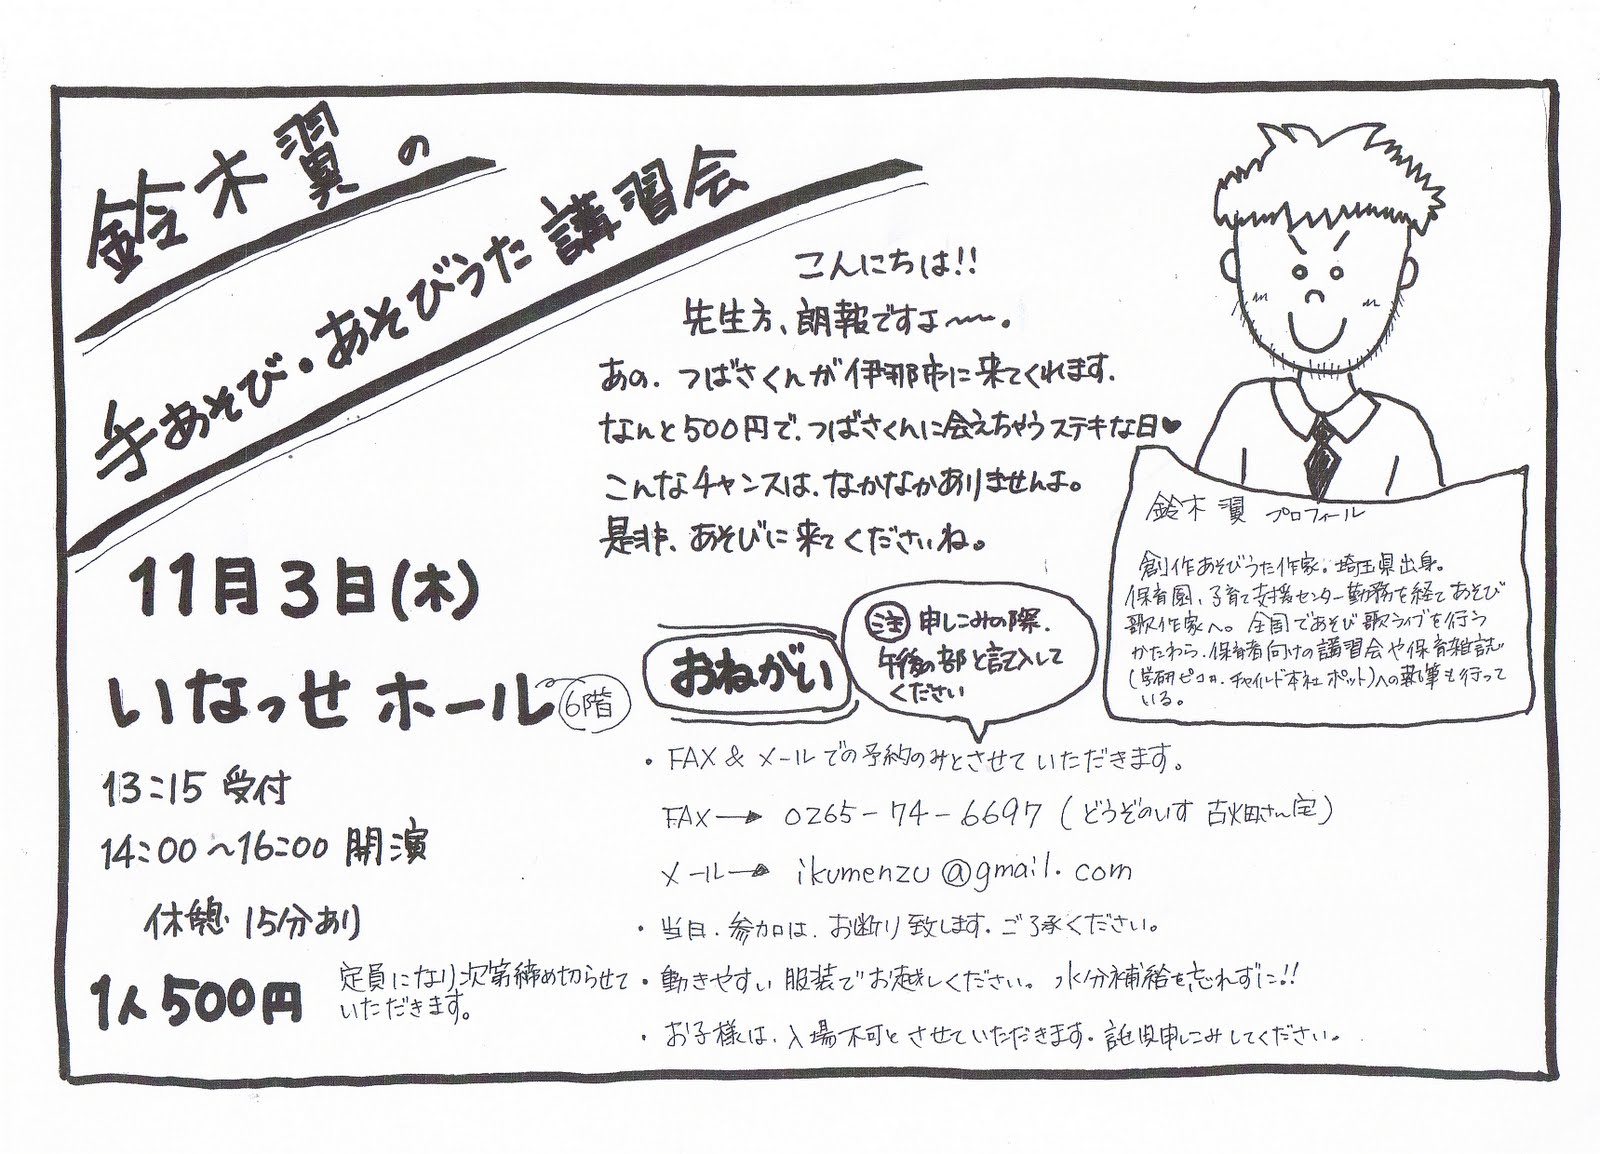 鈴木翼の
手あそび・あそびうた講習会
こんにちは!!
先生方、朗報ですよ〜〜。
あの、つばさくんが伊那市に来てくれます。
なんと500円で、つばさくんに会えちゃうステキな日♥
こんなチャンスは、なかなかありませんよ。
是非、あそびに来てくださいね。
鈴木翼 プロフィール
創作あそびうた作家。埼玉県出身。
保育園、子育て支援センター勤務を経てあそび
歌作家へ。全国であそび歌ライブを行う
かたわら、保育者向けの講習会や保育雑誌
(学研ピコロ、チャイルド本社ポット)への執筆も行って
いる。
11月3日(木)
いなっせホール 6階
13:15 受付
14:00〜16:00 開演
休憩 15分あり
1人500円
定員になり次第締め切らせて
いただきます。
おねがい
注 申しこみの際、
午後の部と記入して
ください
・FAX & メールでの予約のみとさせていただきます。
FAX→ 0265-74-6697 (どうぞのいす 古畑さん宅)
メール→ ikumenzu@gmail.com
・当日、参加は、お断り致します。ご了承ください。
・動きやすい服装でお越しください。水分補給を忘れずに!!
・お子様は、入場不可とさせていただきます。託児申しこみしてください。